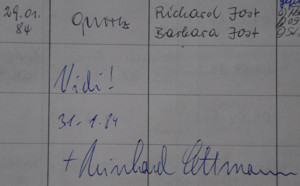 29.01. Quartz Richard Jost
84 Barbara Jost
Vidi!
31-1.84
+ Reinhard Lettmann